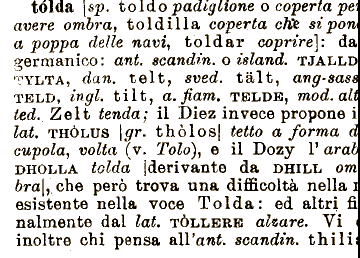 tólda |sp. toldo padiglione o coperta per
avere ombra, toldilla coperta che si pon
a poppa delle navi, toldar coprire]: da
germanico: ant. scandin. o island. TJALLD
TYLTA, dan. telt, sved. tält, ang-sass
TELD, ingl. tilt, a. fiam. TELDE, mod. alt
ted. Zelt tenda; il Diez invece propone i
lat. THÒLUS |gr. thòlos| tetto a forma d
cupola, volta (v. Tolo), e il Dozy l'arab
DHOLLA tolda |derivante da DHILL om
bra|, che però trova una difficoltà nella
esistente nella voce Tolda: ed altri fi
nalmente dal lat. TÒLLERE alzare. Vi
inoltre chi pensa all'ant. scandin. thili